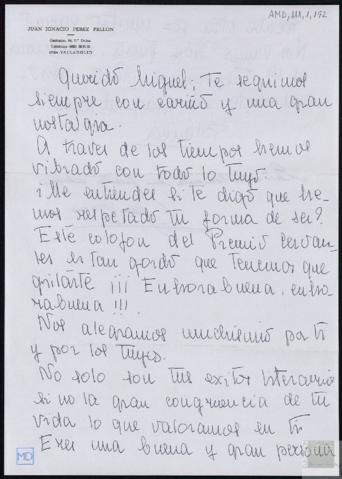 AMD, 111, 1, 192
JUAN IGNACIO PEREZ PELLON
VALLADOLID
Querido Miguel; Te seguimos
siempre con cariño y una gran
nostalgia.
A traves de los tiempos hemos
vibrado con todo lo tuyo.
¿Me entiendes si te digo que he-
mos respetado tu forma de ser?
Este colofon del Premio Cervan-
tes es tan gordo que tenemos que
gritarte ¡¡¡ Enhorabuena, enho-
rabuena !!!
Nos alegramos muchisimo por ti
y por los tuyos.
No solo son tus exitos literarios
si no la gran congruencia de tu
vida lo que valoramos en ti
Eres una buena y gran persona
MD